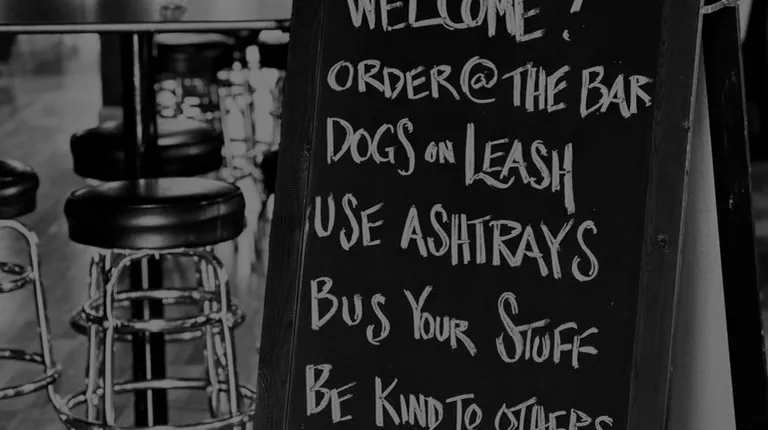 WELCOME!
ORDER@THE BAR
DOGS ON LEASH
USE ASHTRAYS
BUS YOUR STUFF
BE KIND TO OTHERS